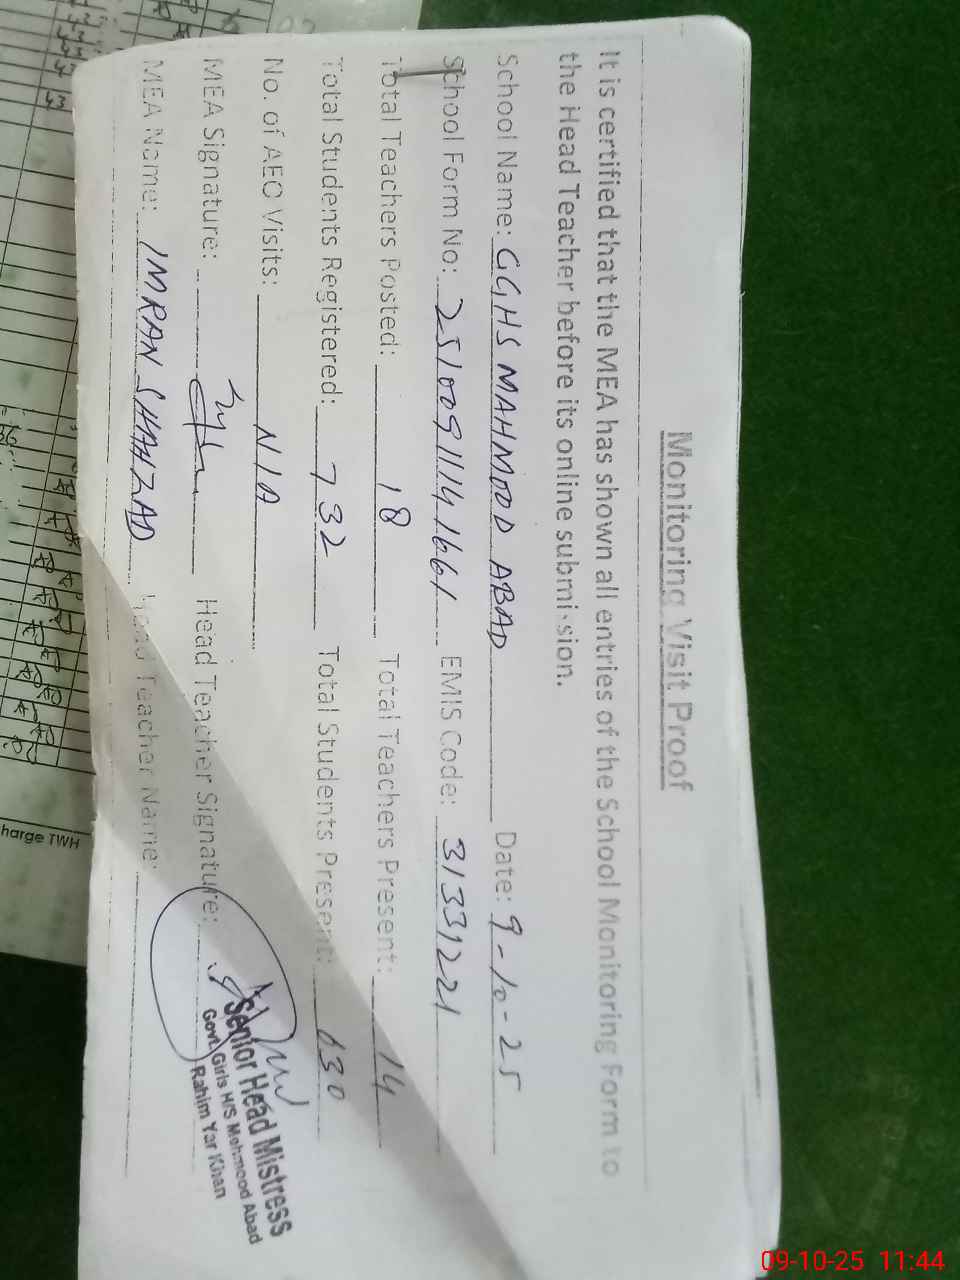 Monitoring Visit Proof
It is certified that the MEA has shown all entries of the School Monitoring Form to
the Head Teacher before its online submission.
School Name: GGHS MAHMOOD ABAD Date: 9-10-25
School Form No: 25100911141661 EMIS Code: 31331221
Total Teachers Posted: 18 Total Teachers Present: 14
Total Students Registered: 732 Total Students Present: 630
No. of AEO Visits: N/A
MEA Signature: Head Teacher Signature:
MEA Name: IMRAN SHAHZAD Head Teacher Name:
Senior Head Mistress
Govt. Girls H/S Mehmood Abad
Rahim Yar Khan
harge TWH
43
09-10-25 11:44